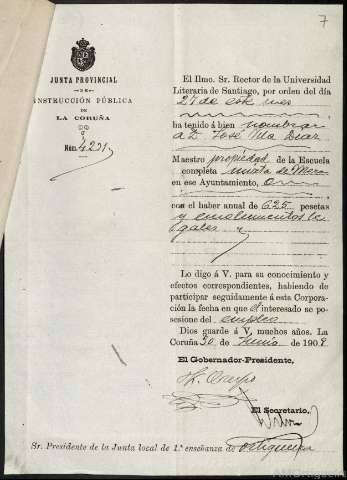 7
JUNTA PROVINCIAL
DE
INSTRUCCIÓN PÚBLICA
DE
LA CORUÑA
Núm. 4231
El Ilmo. Sr. Rector de la Universidad
Literaria de Santiago, por orden del día
27 de este mes
ha tenido á bien nombrar
á D. José Vila Diaz
Maestro propiedad de la Escuela
completa mixta de Mera
en ese Ayuntamiento,
con el haber anual de 625 pesetas
y emolumentos le
gales
Lo digo á V. para su conocimiento y
efectos correspondientes, habiendo de
participar seguidamente á esta Corpora-
ción la fecha en que el interesado se po-
sesione del empleo
Dios guarde á V. muchos años. La
Coruña 30 de Junio de 1909
El Gobernador-Presidente,
El Secretario,
Sr. Presidente de la Junta local de 1.ª enseñanza de Ortigueira